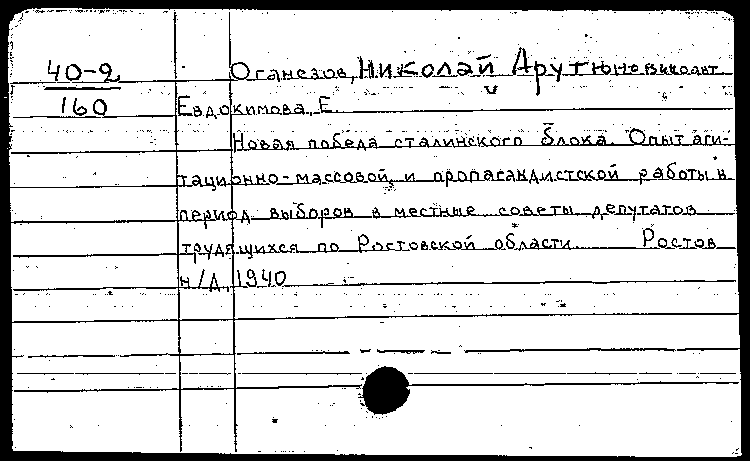 40-2
160
Оганезов, Николай Арутюнович
Евдокимова, Е.
Новая победа сталинского блока. Опыт аги-
тационно-массовой и пропагандистской работы в
период выборов в местные советы депутатов
трудящихся по Ростовской области. Ростов
н/Д, 1940